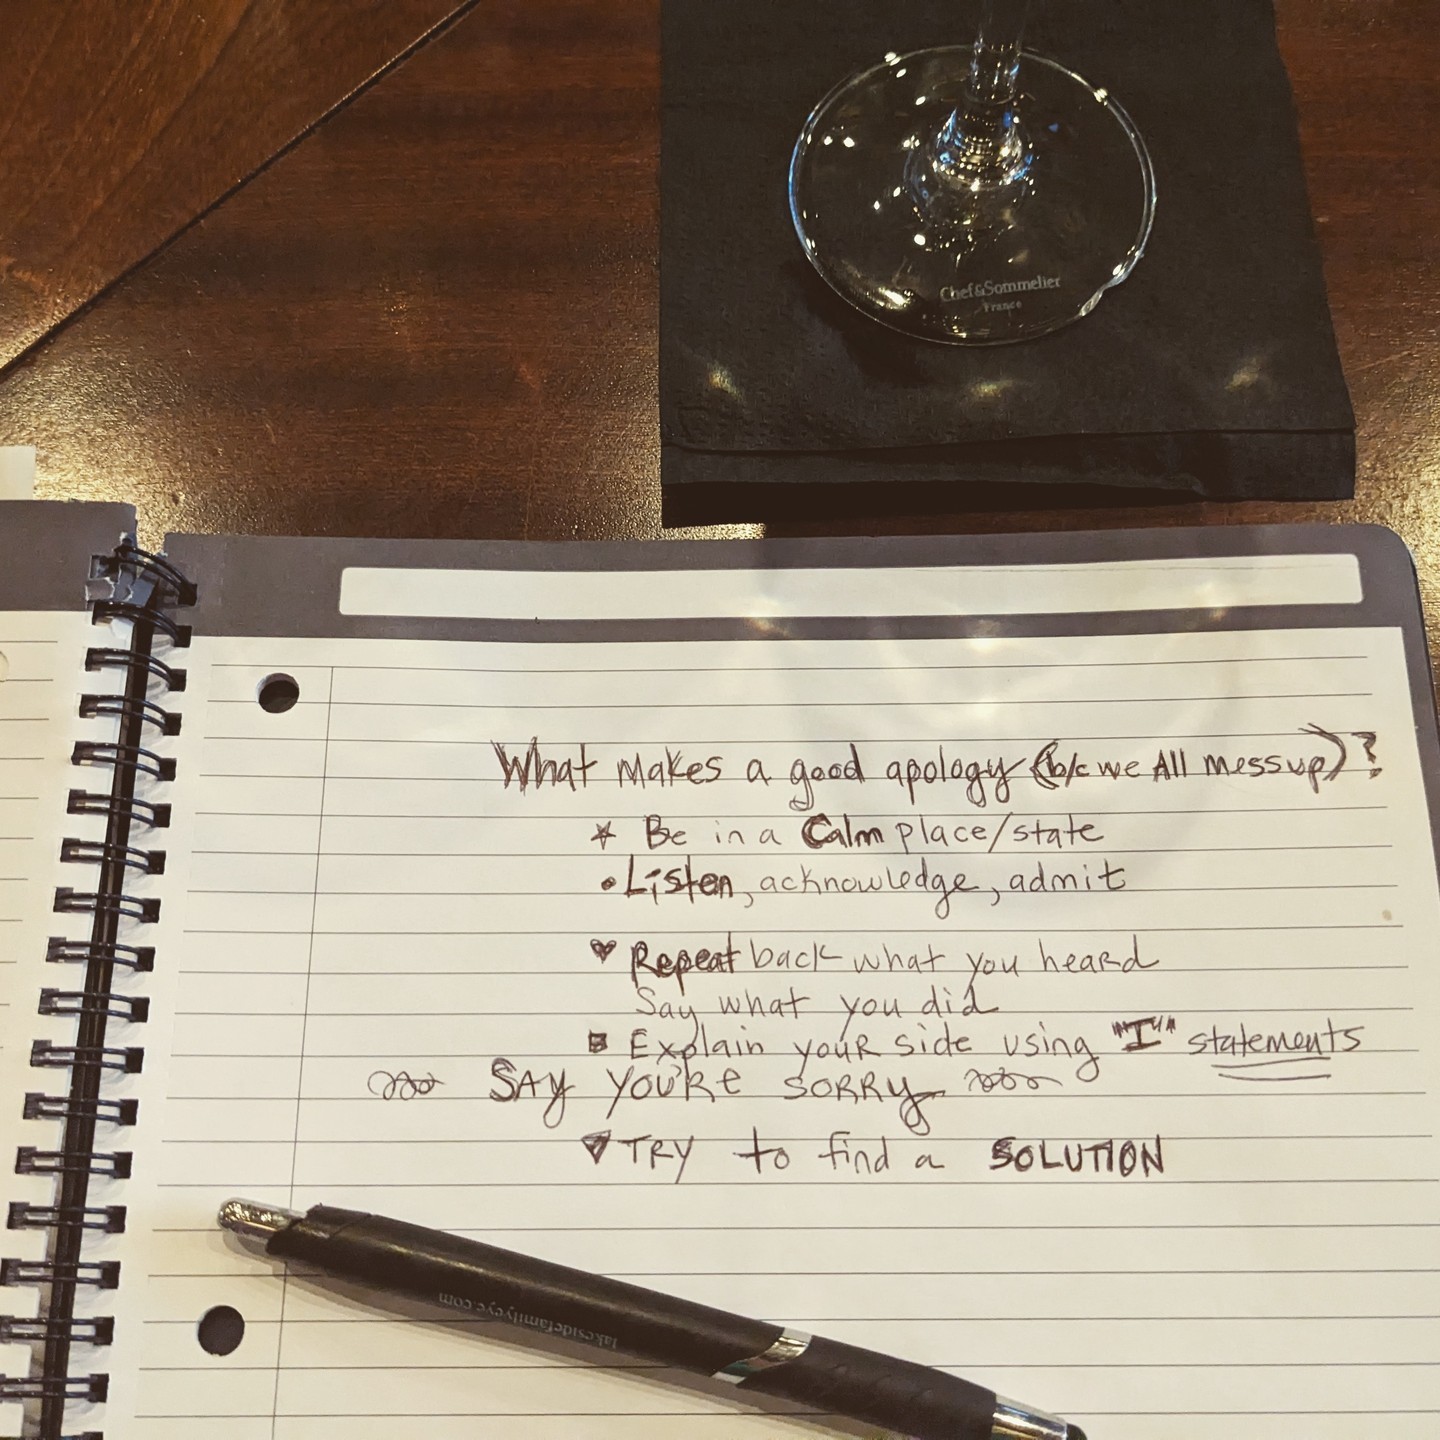 Chef&Sommelier
France
What makes a good apology (b/c we All mess up)?
* Be in a Calm place/state
• Listen, acknowledge, admit
♥ Repeat back what you heard
Say what you did
■ Explain your side using "I" statements
SAY YOU'RE SORRY
▼ TRY to find a SOLUTION
lakesidefamilyeye.com